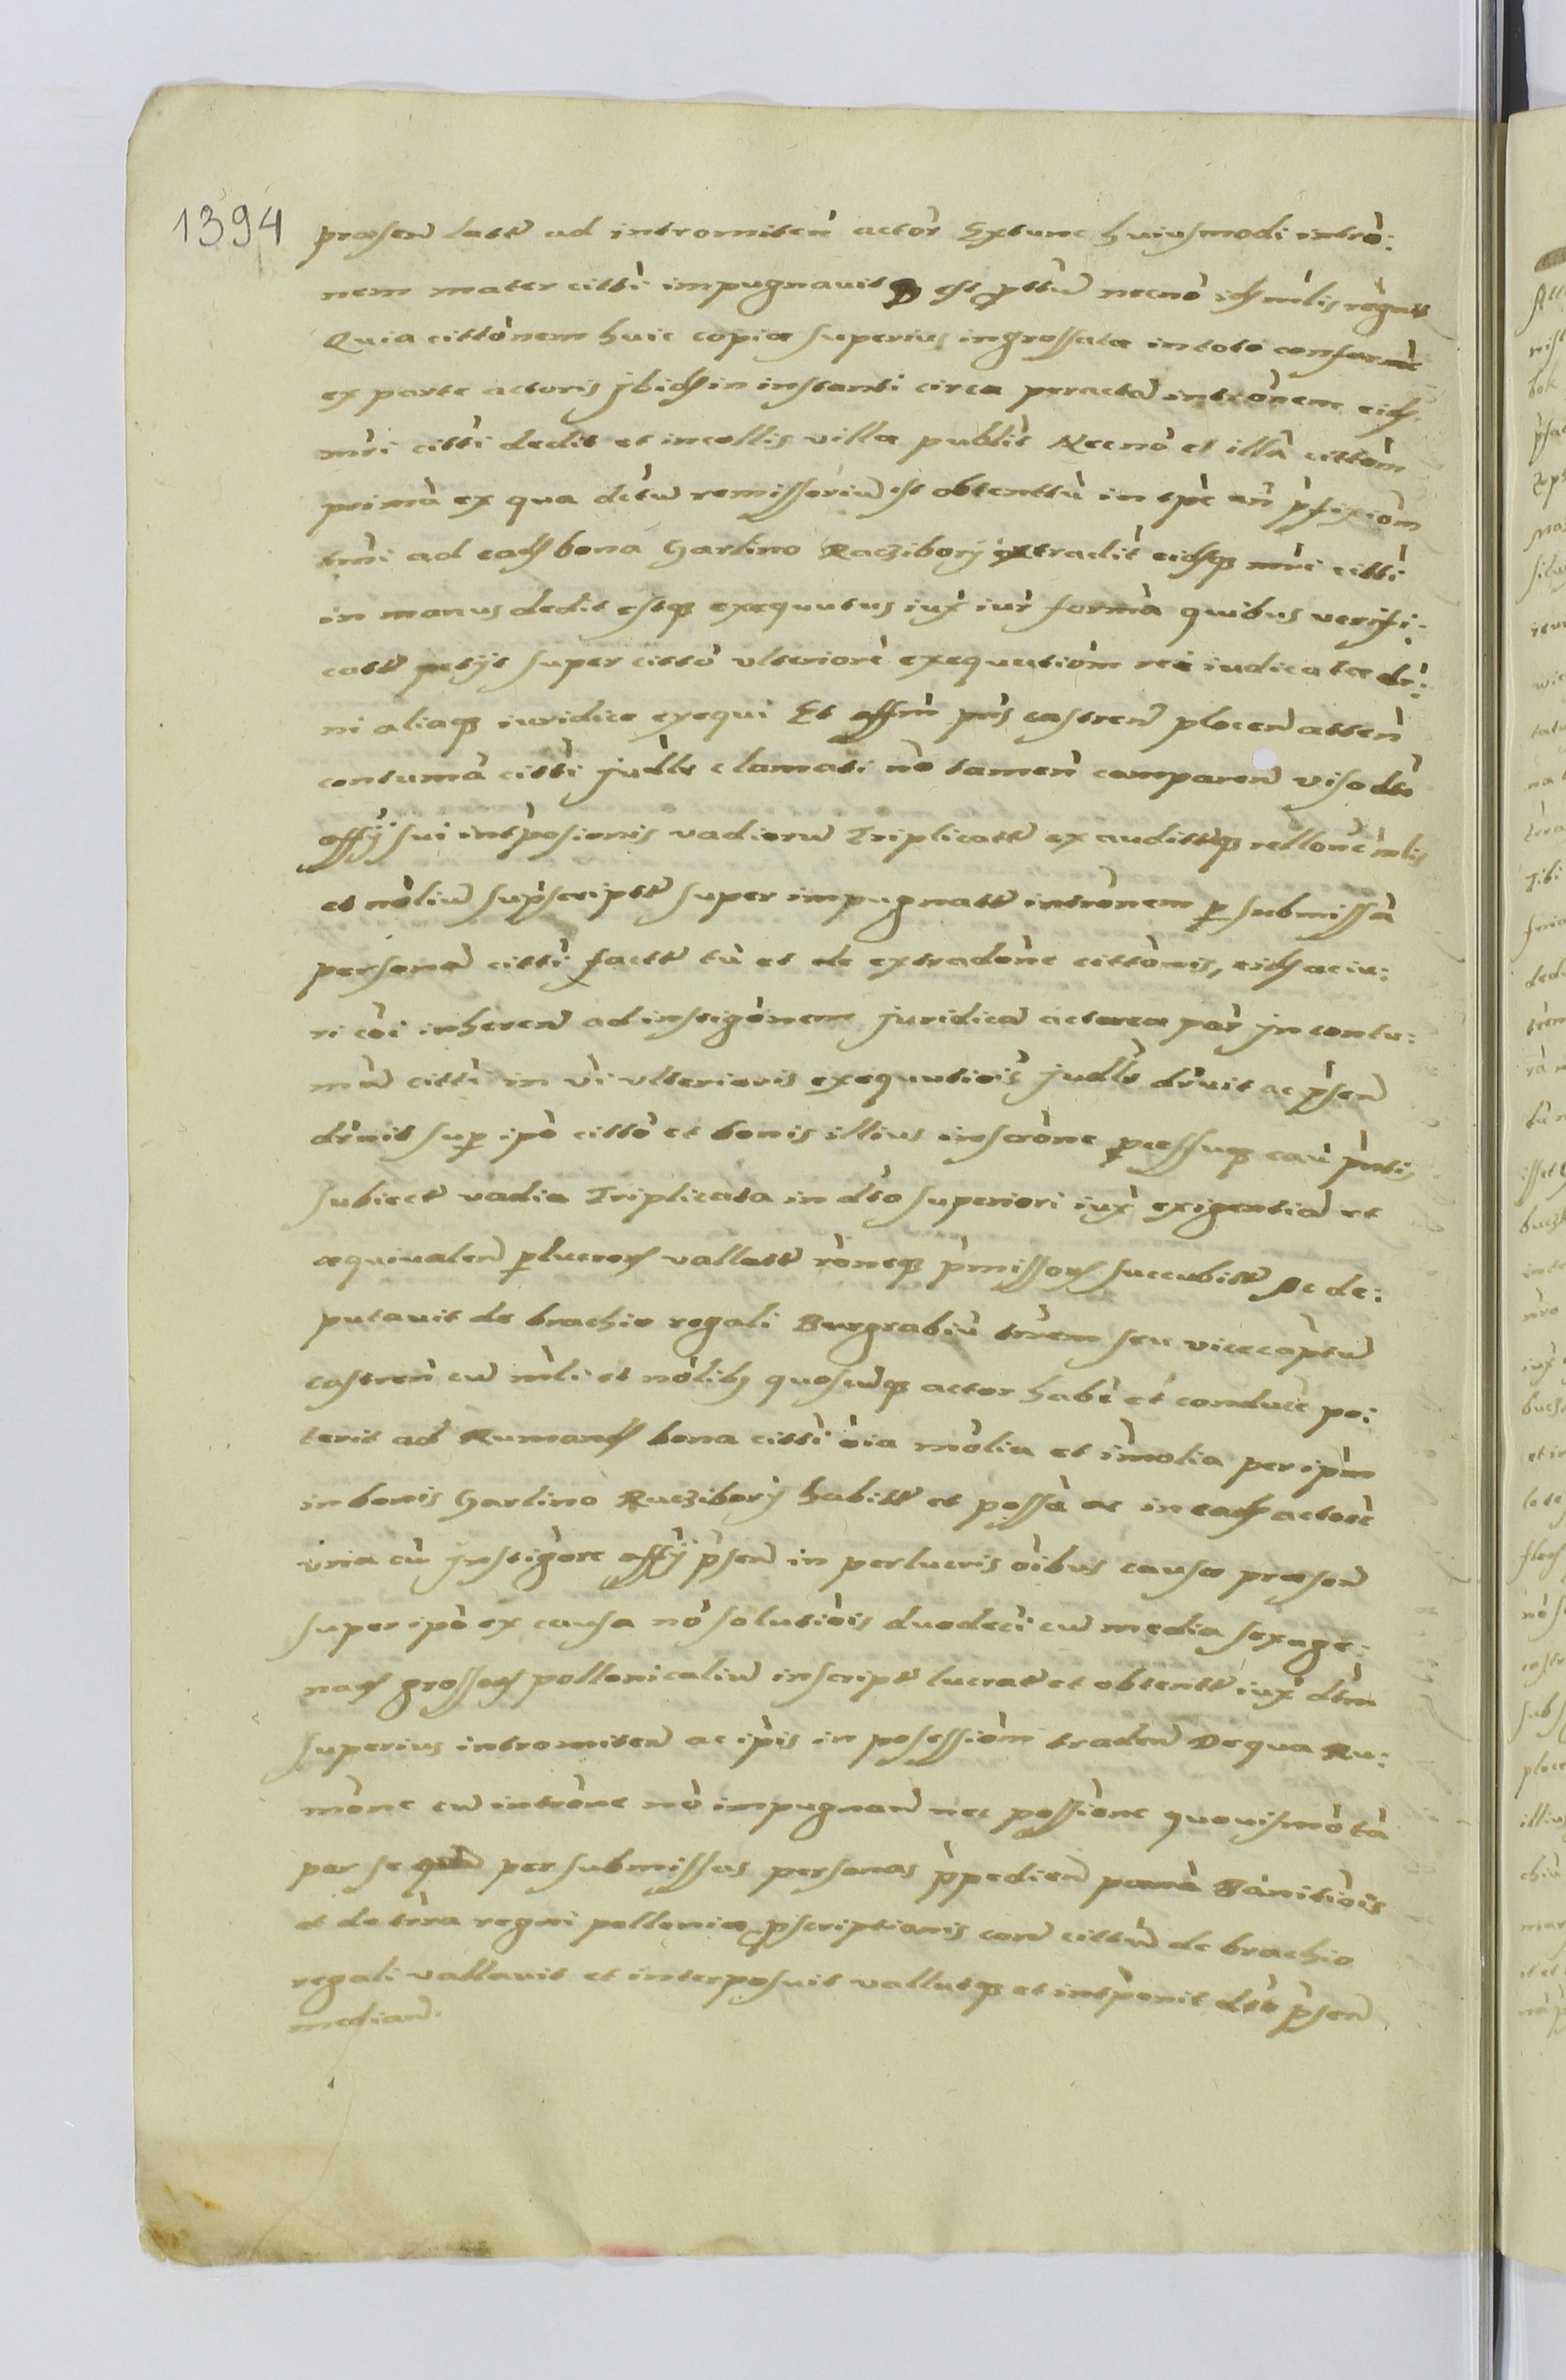 1394
præsen latt ad intromiten actor Extunc huiusmodi intro:
nem mater citti impugnauit est ttu necno mlis regnt
Quia cittonem huic copiæ superius ingrossatæ in toto conforme
ex parte actoris jbid in instanti circa peracta intronem eid
mri citti dedit et incollis villæ publit Necno et illa cittom
prima ex qua dctu remissoriu est obtenttu in spe an pfixiom
tmi ad ead bona Garlino Raczibory extradit eidq mri citti
in manus dedit estq exequutus iux iur forma quibus verifi:
catt petyt super citto vlteriore exequutiom rei iudicatæ dr:
ni aliaq iuridice exequi Et offm pns castren plocen atten
contuma citti judlr clamati no tamen comparen viso dto
offy sui intposionis vadiorum Triplicatt exaudittq rellone mlis
et noliu supscriptt super impugnatt intronem p submissa
persona citti factt tu et de extradone cittonis, eid ac iu:
ri coi inheren ad instigonem juridica actorea par jn contu:
ma citti in vi vlterioris exequutiois judlr druit ac psen
drnit sup ipo citto et bonis illius inscrone pcessuq cau pntis
subiect vadia Triplicata in dto superiori iux exigentia et
æquiualen plucror vallatt roneq pmissor succubitt Ac de:
putauit de brachio regali Burgrabiu trem seu vicecaptu
castren cu mli et nolib quoscuq actor habe et conduce po:
terit ad Rumand bona citti oia molia et imolia per ipm
in bonis Garlino Raczibory habitt et possa ac in ead actore
vna cu jnstigore offy psen in perlucris oibus causæ præsen
super ipo ex causa no solutiois duodeci cu media sexage:
nar grossor pollonicaliu inscript lucrat et obtentt iux dtm
superius intromiten ac ipis in posessiom traden De qua Ru:
mone cu introne no impugnan nec possione quouismo ta
per se qua per submissas personas ppedien pœna Banitiois
et de trra regni polloniæ pscriptionis con cittu de brachio
regali vallauit et interposuit vallatq et intponit dto psen
median.